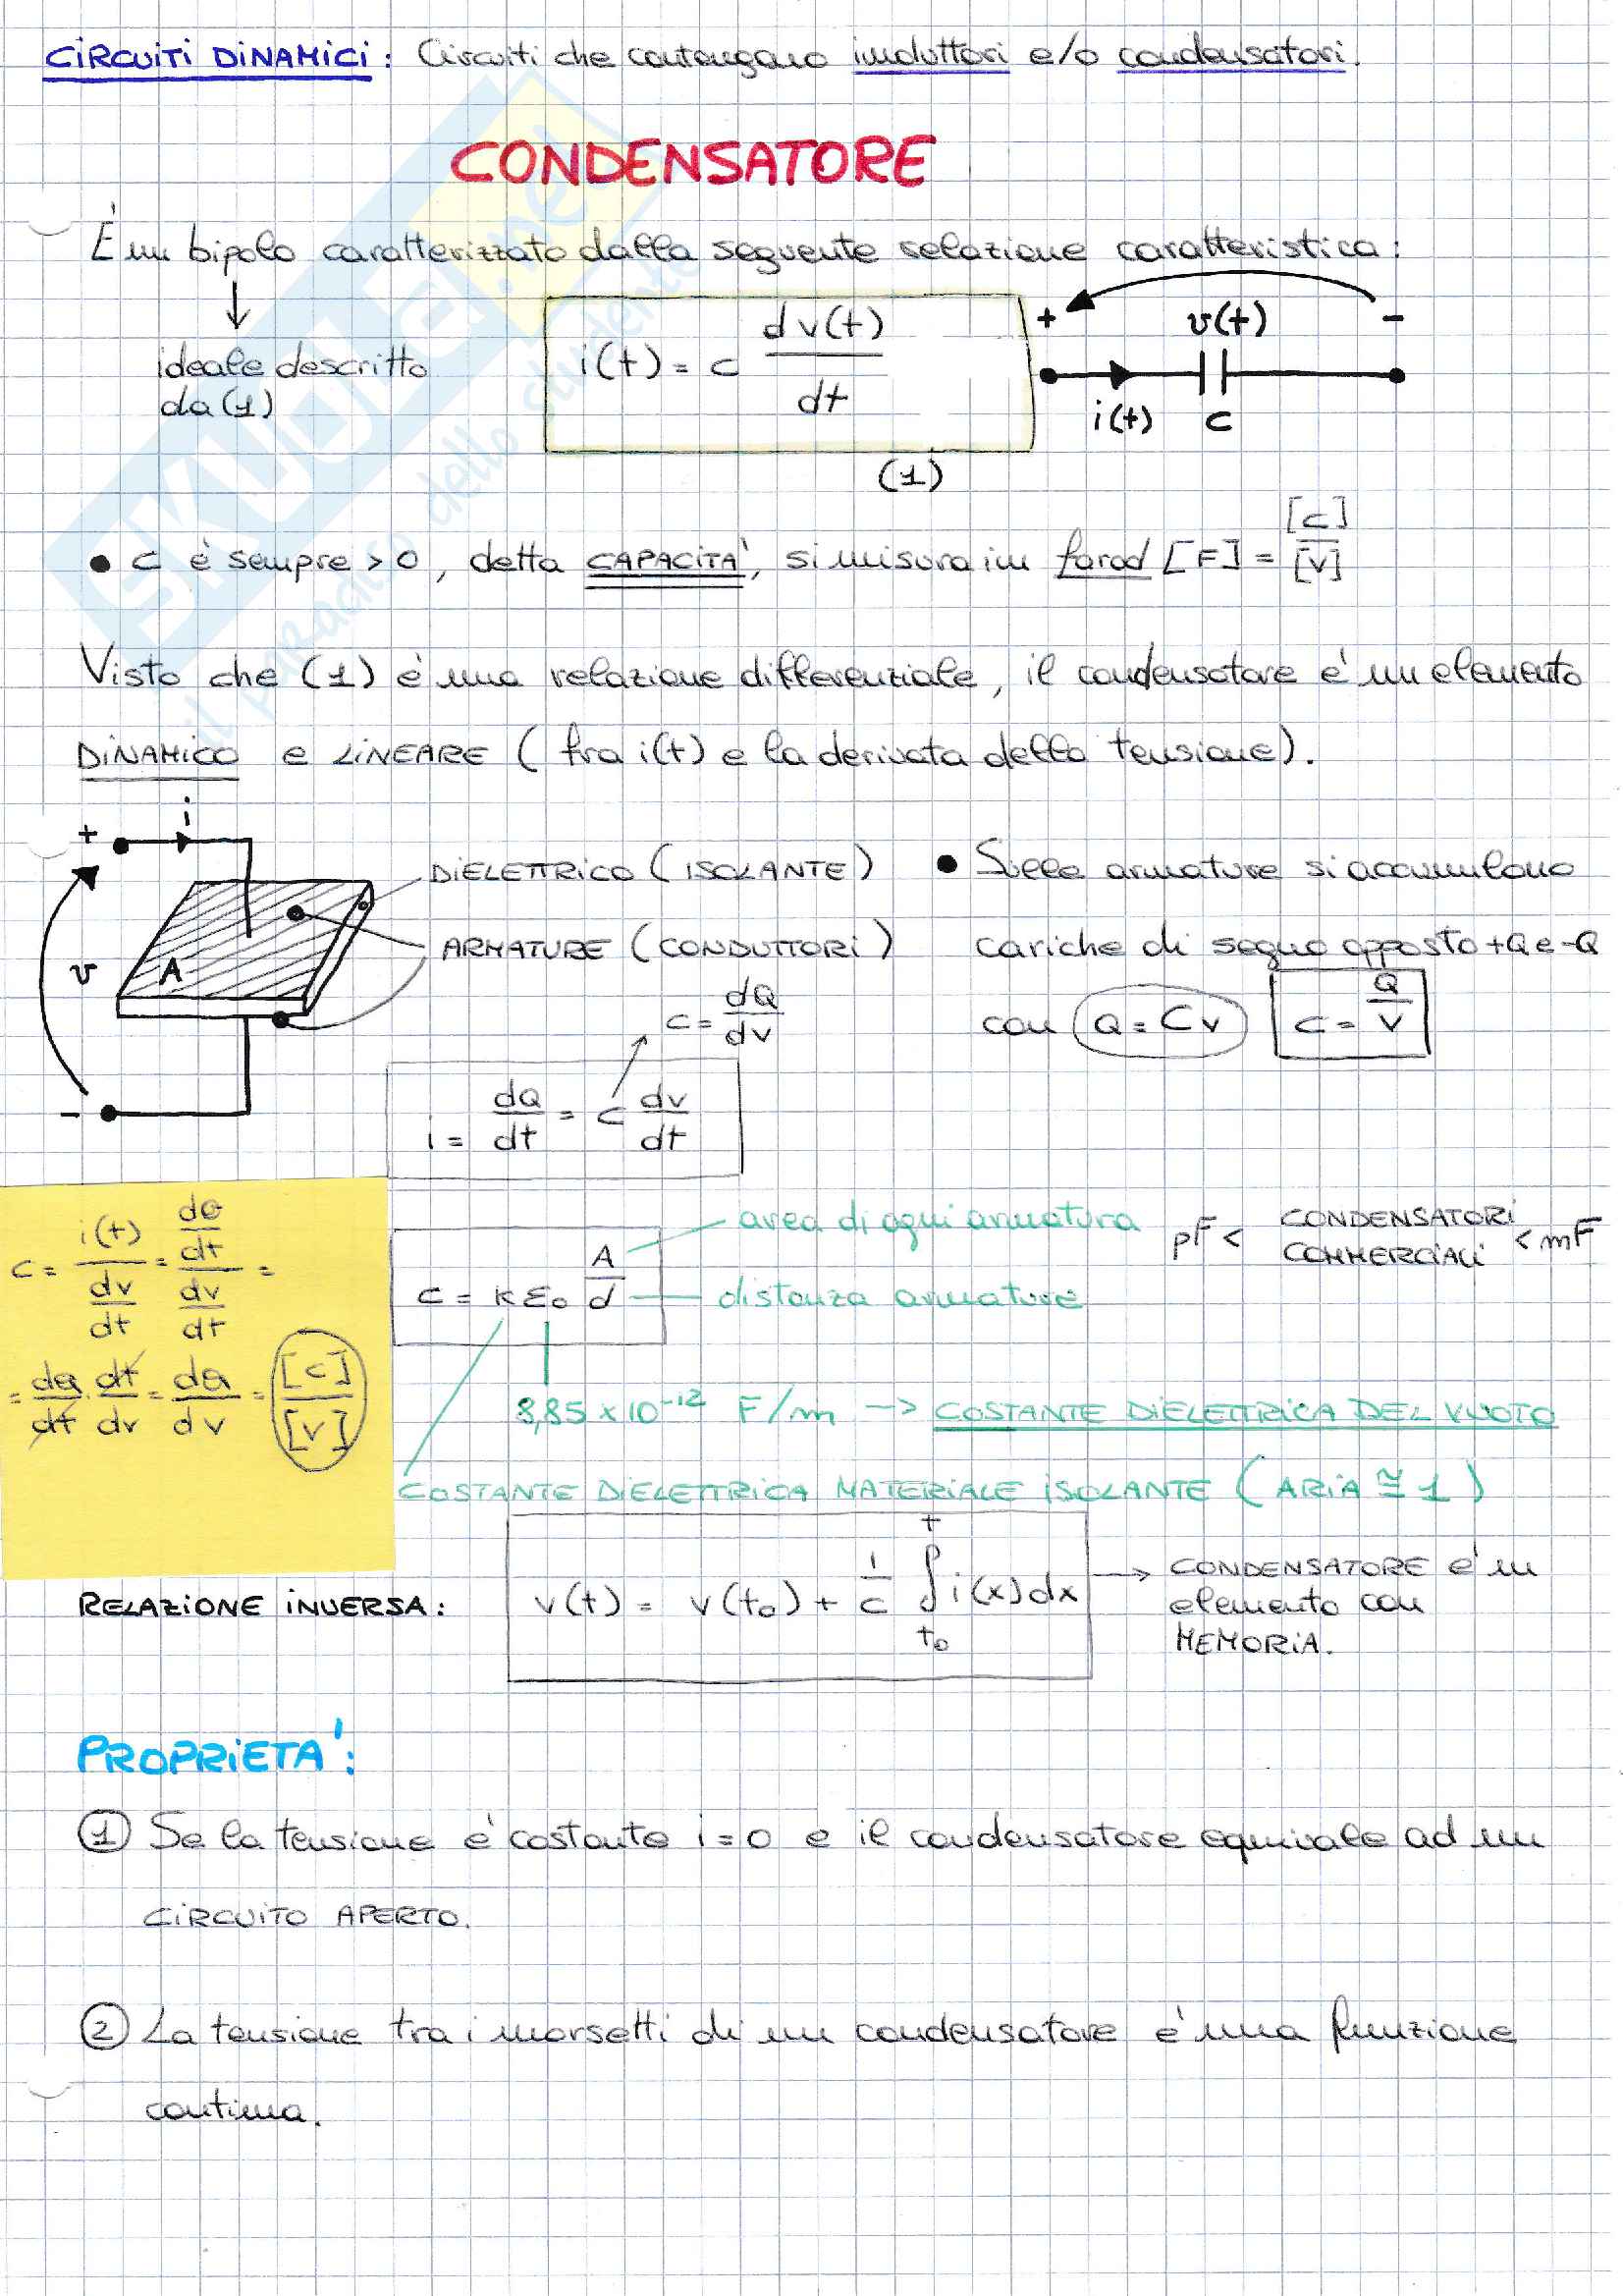 CIRCUITI DINAMICI: Circuiti che contengano induttori e/o condensatori.
CONDENSATORE
É un bipolo caratterizzato dalla seguente relazione caratteristica:
ideale descritto
da (1)
i(t) = c dv(t)/dt
(1)
+ v(t) -
i(t) c
• C è sempre > 0, detta CAPACITA', si misura in farad [F] = [c]/[V]
Visto che (1) é una relazione differenziale, il condensatore é un elemento
DINAMICO e LINEARE ( fra i(t) e la derivata della tensione).
i
+
v
A
-
DIELETTRICO ( ISOLANTE )
ARMATURE ( CONDUTTORI )
• Sulle armature si accumulano
cariche di segno opposto +Q e -Q
con Q = Cv C = Q/V
c = dQ/dv
i = dQ/dt = c dv/dt
c = i(t)/(dv/dt) = (dQ/dt)/(dv/dt) =
= dQ/dt · dt/dv = dQ/dv = [c]/[v]
c = k ε0 A/d
area di ogni armatura
distanza armature
pF < CONDENSATORI COMMERCIALI < mF
8,85 x 10^-12 F/m -> COSTANTE DIELETTRICA DEL VUOTO
COSTANTE DIELETTRICA MATERIALE ISOLANTE ( ARIA ≅ 1 )
RELAZIONE INVERSA: v(t) = v(t0) + 1/c ∫ t0 t i(x) dx
→ CONDENSATORE é un
elemento con
MEMORIA.
PROPRIETA':
① Se la tensione é costante i = 0 e il condensatore equivale ad un
CIRCUITO APERTO.
② La tensione tra i morsetti di un condensatore é una funzione
continua.
SKUOLA.net
il paradiso dello studente